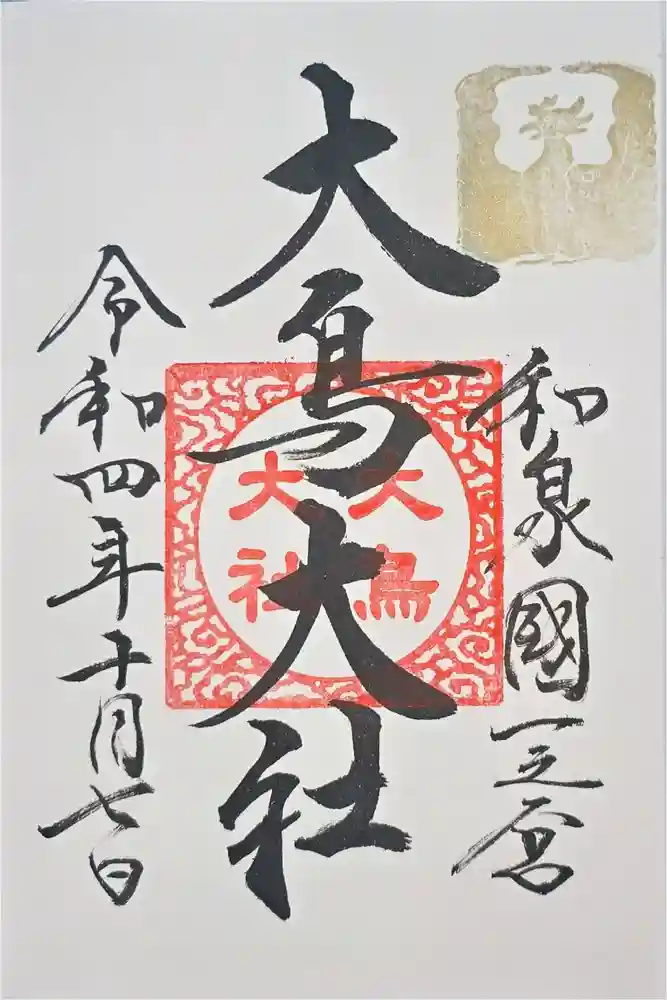 和泉國一之宮
大鳥大社
令和四年十月七日
大鳥
大社